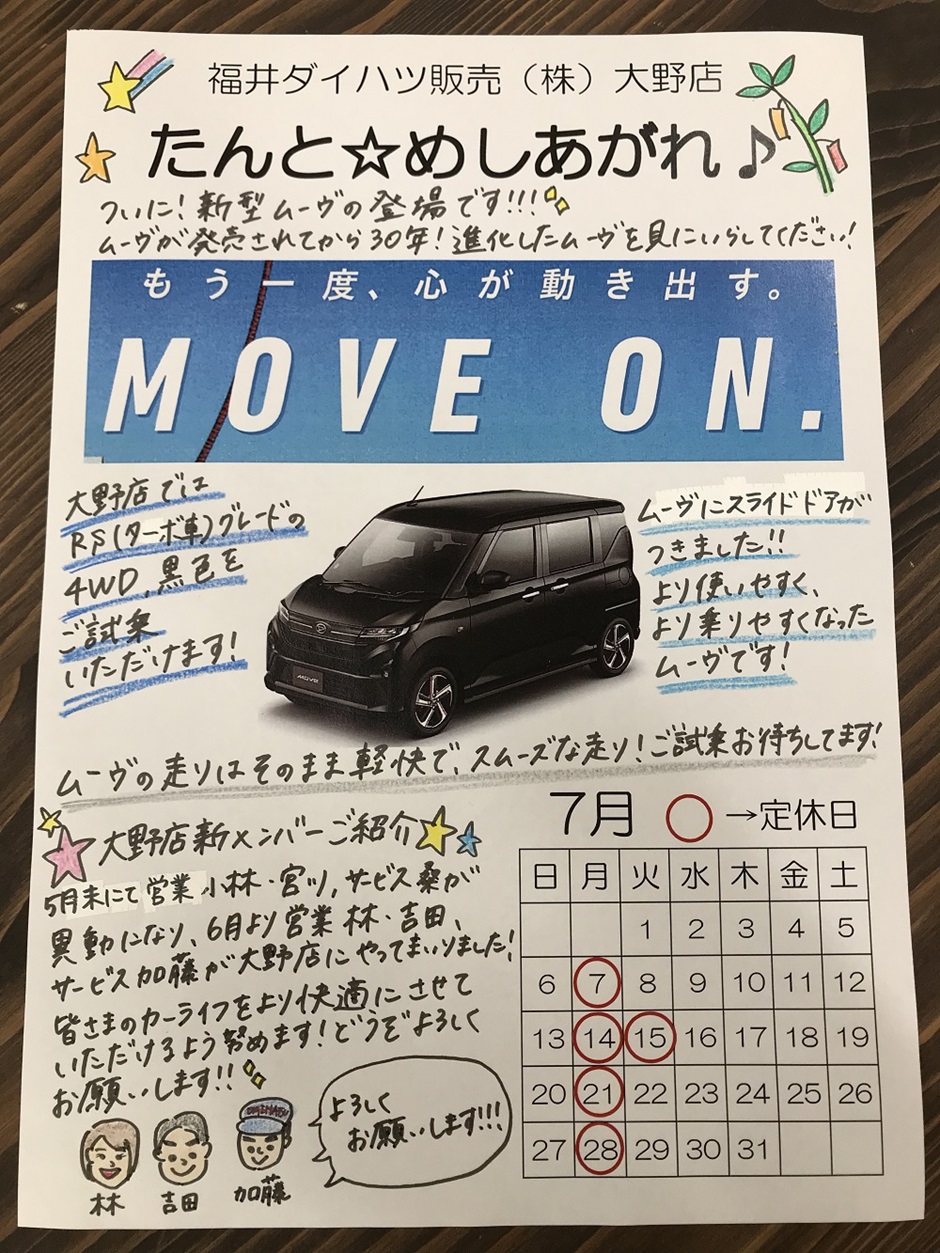 福井ダイハツ販売（株）大野店
たんと☆めしあがれ♪
ついに！新型ムーヴの登場です!!!
ムーヴが発売されてから30年！進化したムーヴを見にいらしてください！
もう一度、心が動き出す。
MOVE ON.
大野店では
RS(ターボ車)グレードの
4WD、黒色を
ご試乗
いただけます！
ムーヴにスライドドアが
つきました!!
より使いやすく、
より乗りやすくなった
ムーヴです！
MOVE
ムーヴの走りはそのまま軽快で、スムーズな走り！ご試乗お待ちしてます！
大野店新メンバーご紹介
5月末にて営業 小林・宮ツ，サービス桑が
異動になり、6月より営業 林・吉田、
サービス加藤が大野店にやってまいりました！
皆さまのカーライフをより快適にさせて
いただけるよう努めます！どうぞよろしく
お願いします!!
よろしく
お願いします!!!
林 吉田 加藤
7月 ○→定休日
日 月 火 水 木 金 土
1 2 3 4 5
6 7 8 9 10 11 12
13 14 15 16 17 18 19
20 21 22 23 24 25 26
27 28 29 30 31